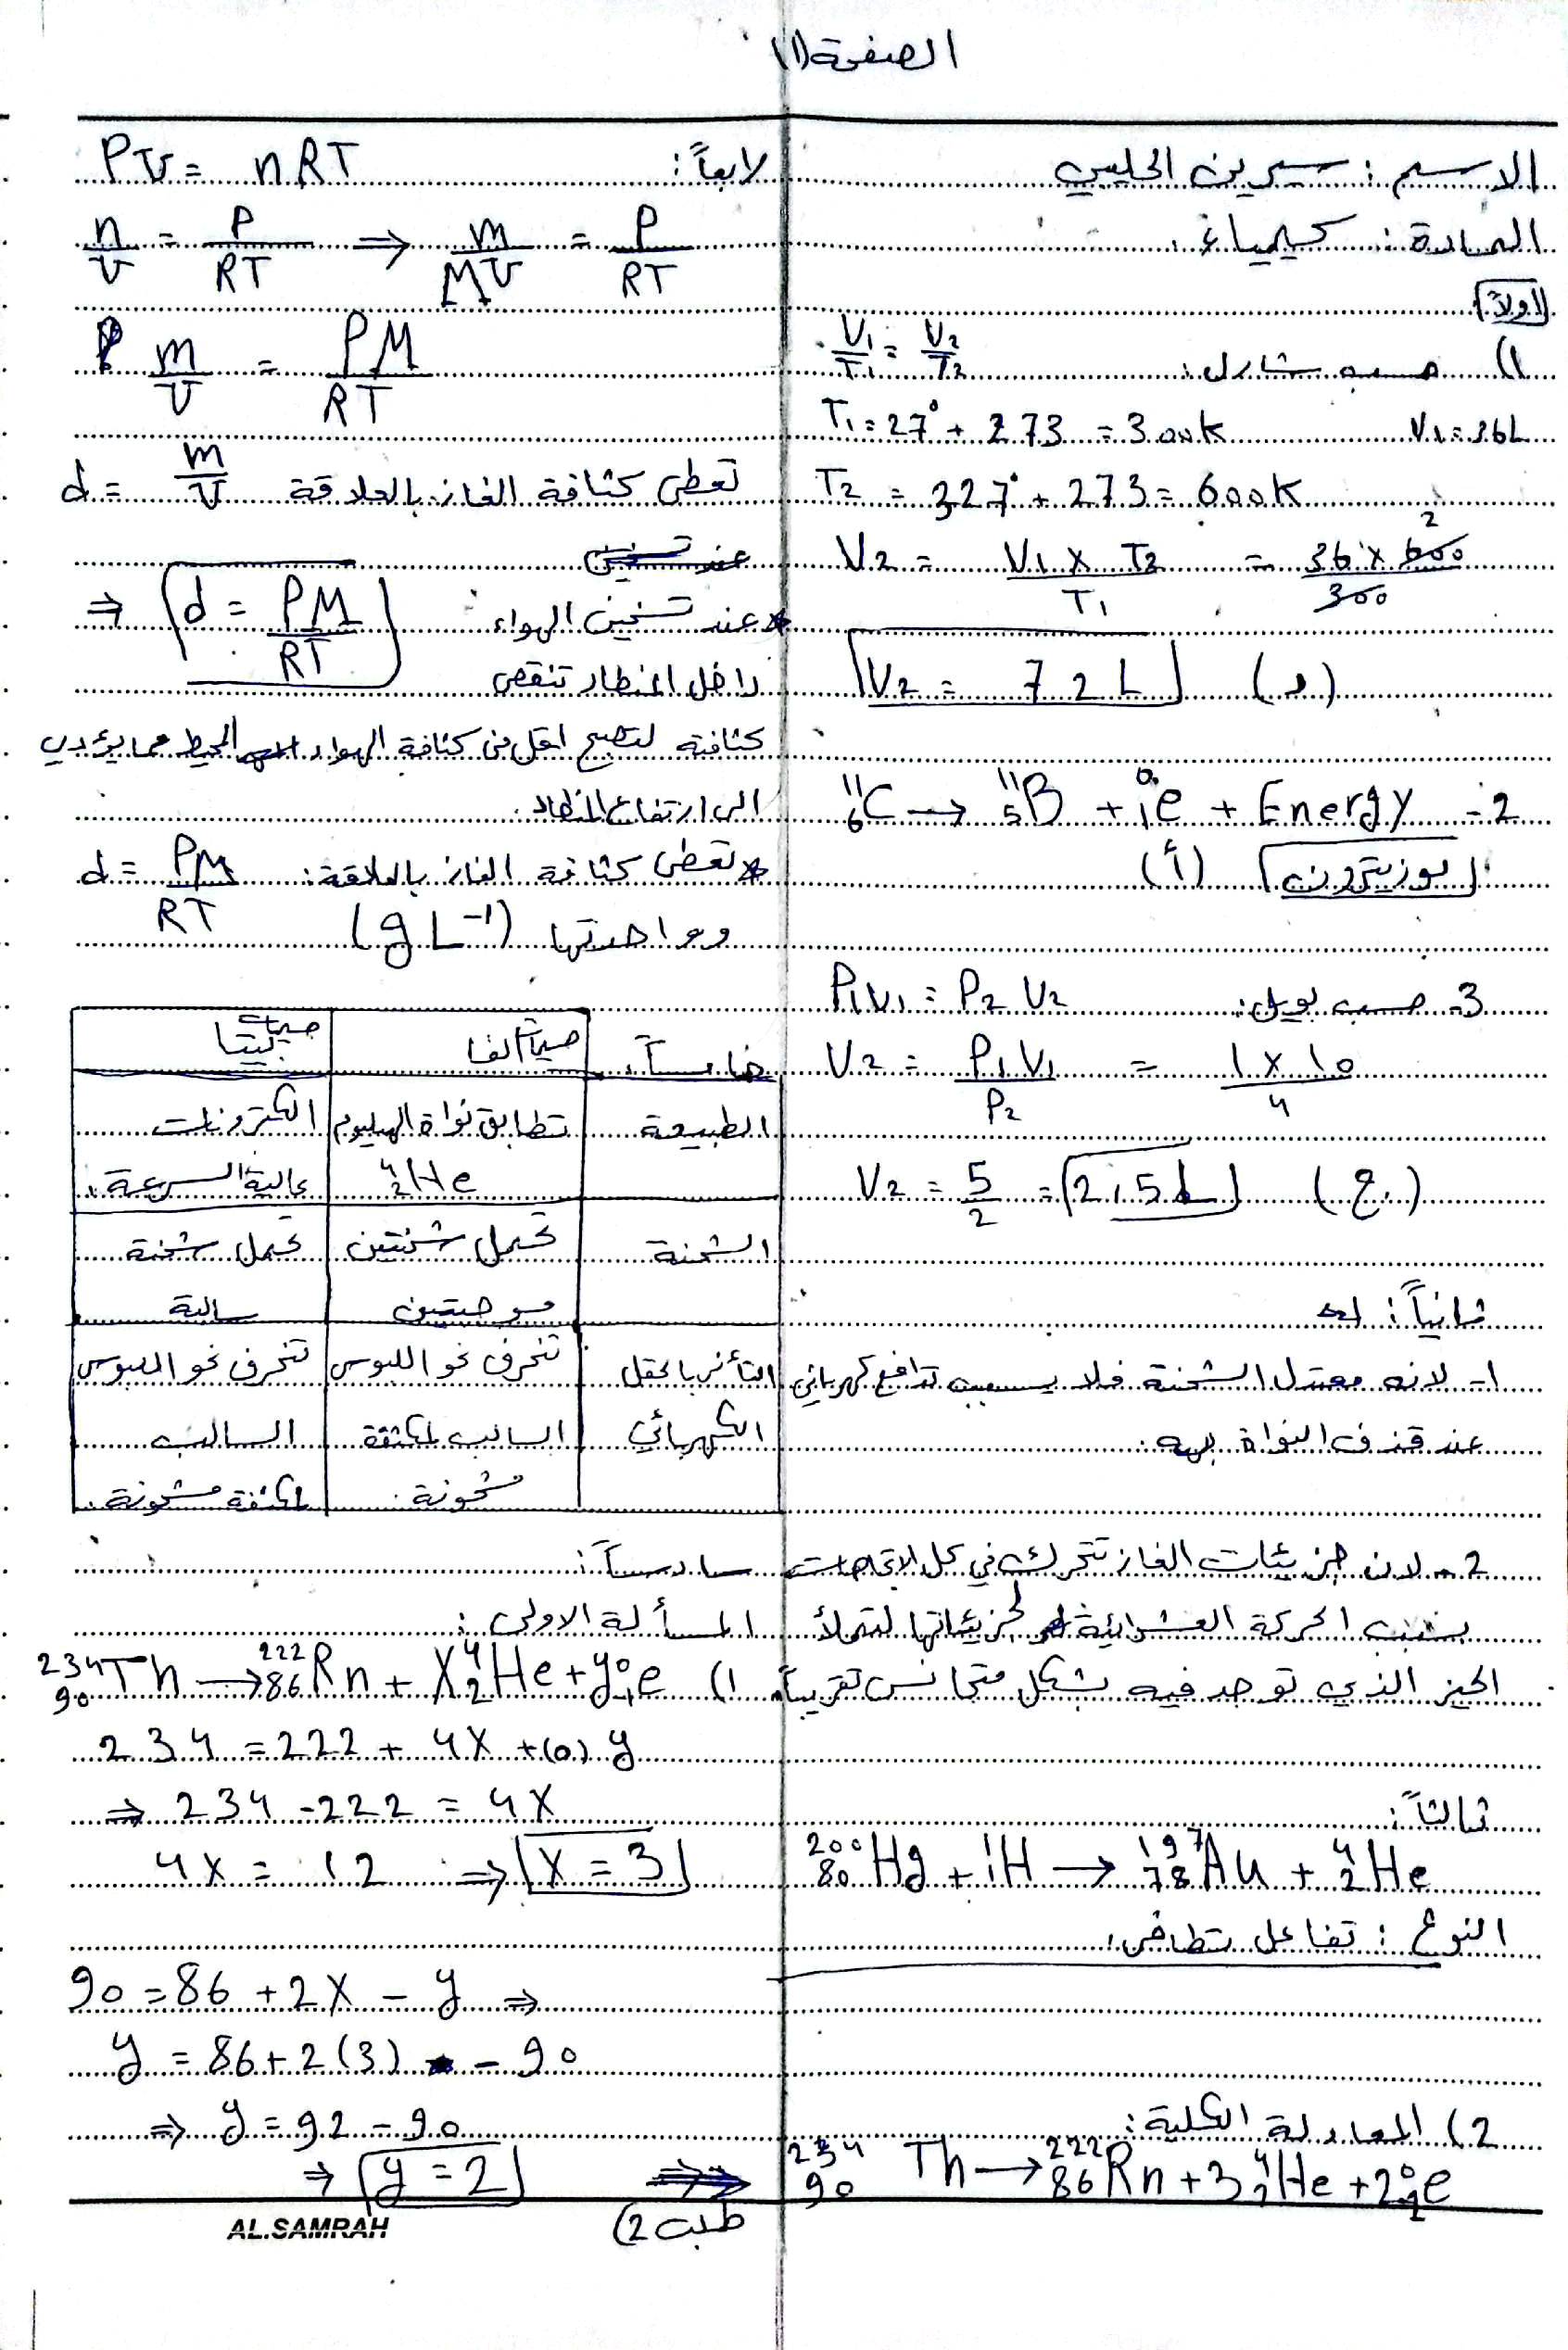 الصفحة (1)
الاسم : سيرين الحليبي
المادة : كيمياء
أولاً
1) حسب شارل : V1/T1 = V2/T2
T1 = 27° + 273 = 300K V1 = 36L
T2 = 327° + 273 = 600K
V2 = V1 x T2 / T1 = 36 x 600 / 300
2
V2 = 72L (د)
2- ¹¹₆C → ¹¹₅B + ⁰₁e + Energy
بوزيترون (أ)
3- حسب بويل : P1V1 = P2V2
V2 = P1V1 / P2 = 1 x 10 / 4
V2 = 5/2 = 2,5L (ج)
ثانياً :
1- لانه معتدل الشحنة فلا يسبب تدافع كهربائي
عند قذف النواة به.
2- لان جزيئات الغاز تتحرك في كل الاتجاهات
بسبب الحركة العشوائية لجزيئاتها لتملأ
الحيز الذي توجد فيه بشكل متجانس تقريباً.
ثالثاً :
²⁰⁰₈₀Hg + ¹₁H → ¹⁹⁷₇₈Au + ⁴₂He
النوع : تفاعل تطافر.
2) المعادلة الكلية :
²³⁴₉₀Th → ²²²₈₆Rn + 3⁴₂He + 2⁰₋₁e
رابعاً : PV = nRT
n/V = P/RT ⇒ m/MV = P/RT
m/V = PM/RT
تعطى كثافة الغاز بالعلاقة d = m/V
عند تسخين
⇒ d = PM/RT
* عند تسخين الهواء
داخل المنطاد تنقص
كثافته لتصبح اقل من كثافة الهواء المحيط مما يؤدي
الى ارتفاع المنطاد.
* تعطى كثافة الغاز بالعلاقة : d = PM/RT
وواحدتها (gL⁻¹)
خامساً : جسيمات ألفا جسيمات بيتا
الطبيعة تطابق نواة الهيليوم ⁴₂He الكترونات عالية السرعة.
الشحنة تحمل شحنتين موجبتين تحمل شحنة سالبة
التأثر بالحقل الكهربائي تنحرف نحو اللبوس السالب لمكثفة مشحونة. تنحرف نحو اللبوس السالب لمكثفة مشحونة.
سادساً :
المسألة الاولى :
1) ²³⁴₉₀Th → ²²²₈₆Rn + X⁴₂He + y⁰₋₁e
234 = 222 + 4X + (0) y
⇒ 234 - 222 = 4X
4X = 12 ⇒ X = 3
90 = 86 + 2X - y ⇒
y = 86 + 2(3) - 90
⇒ y = 92 - 90
⇒ y = 2
طلب 2)
AL.SAMRAH